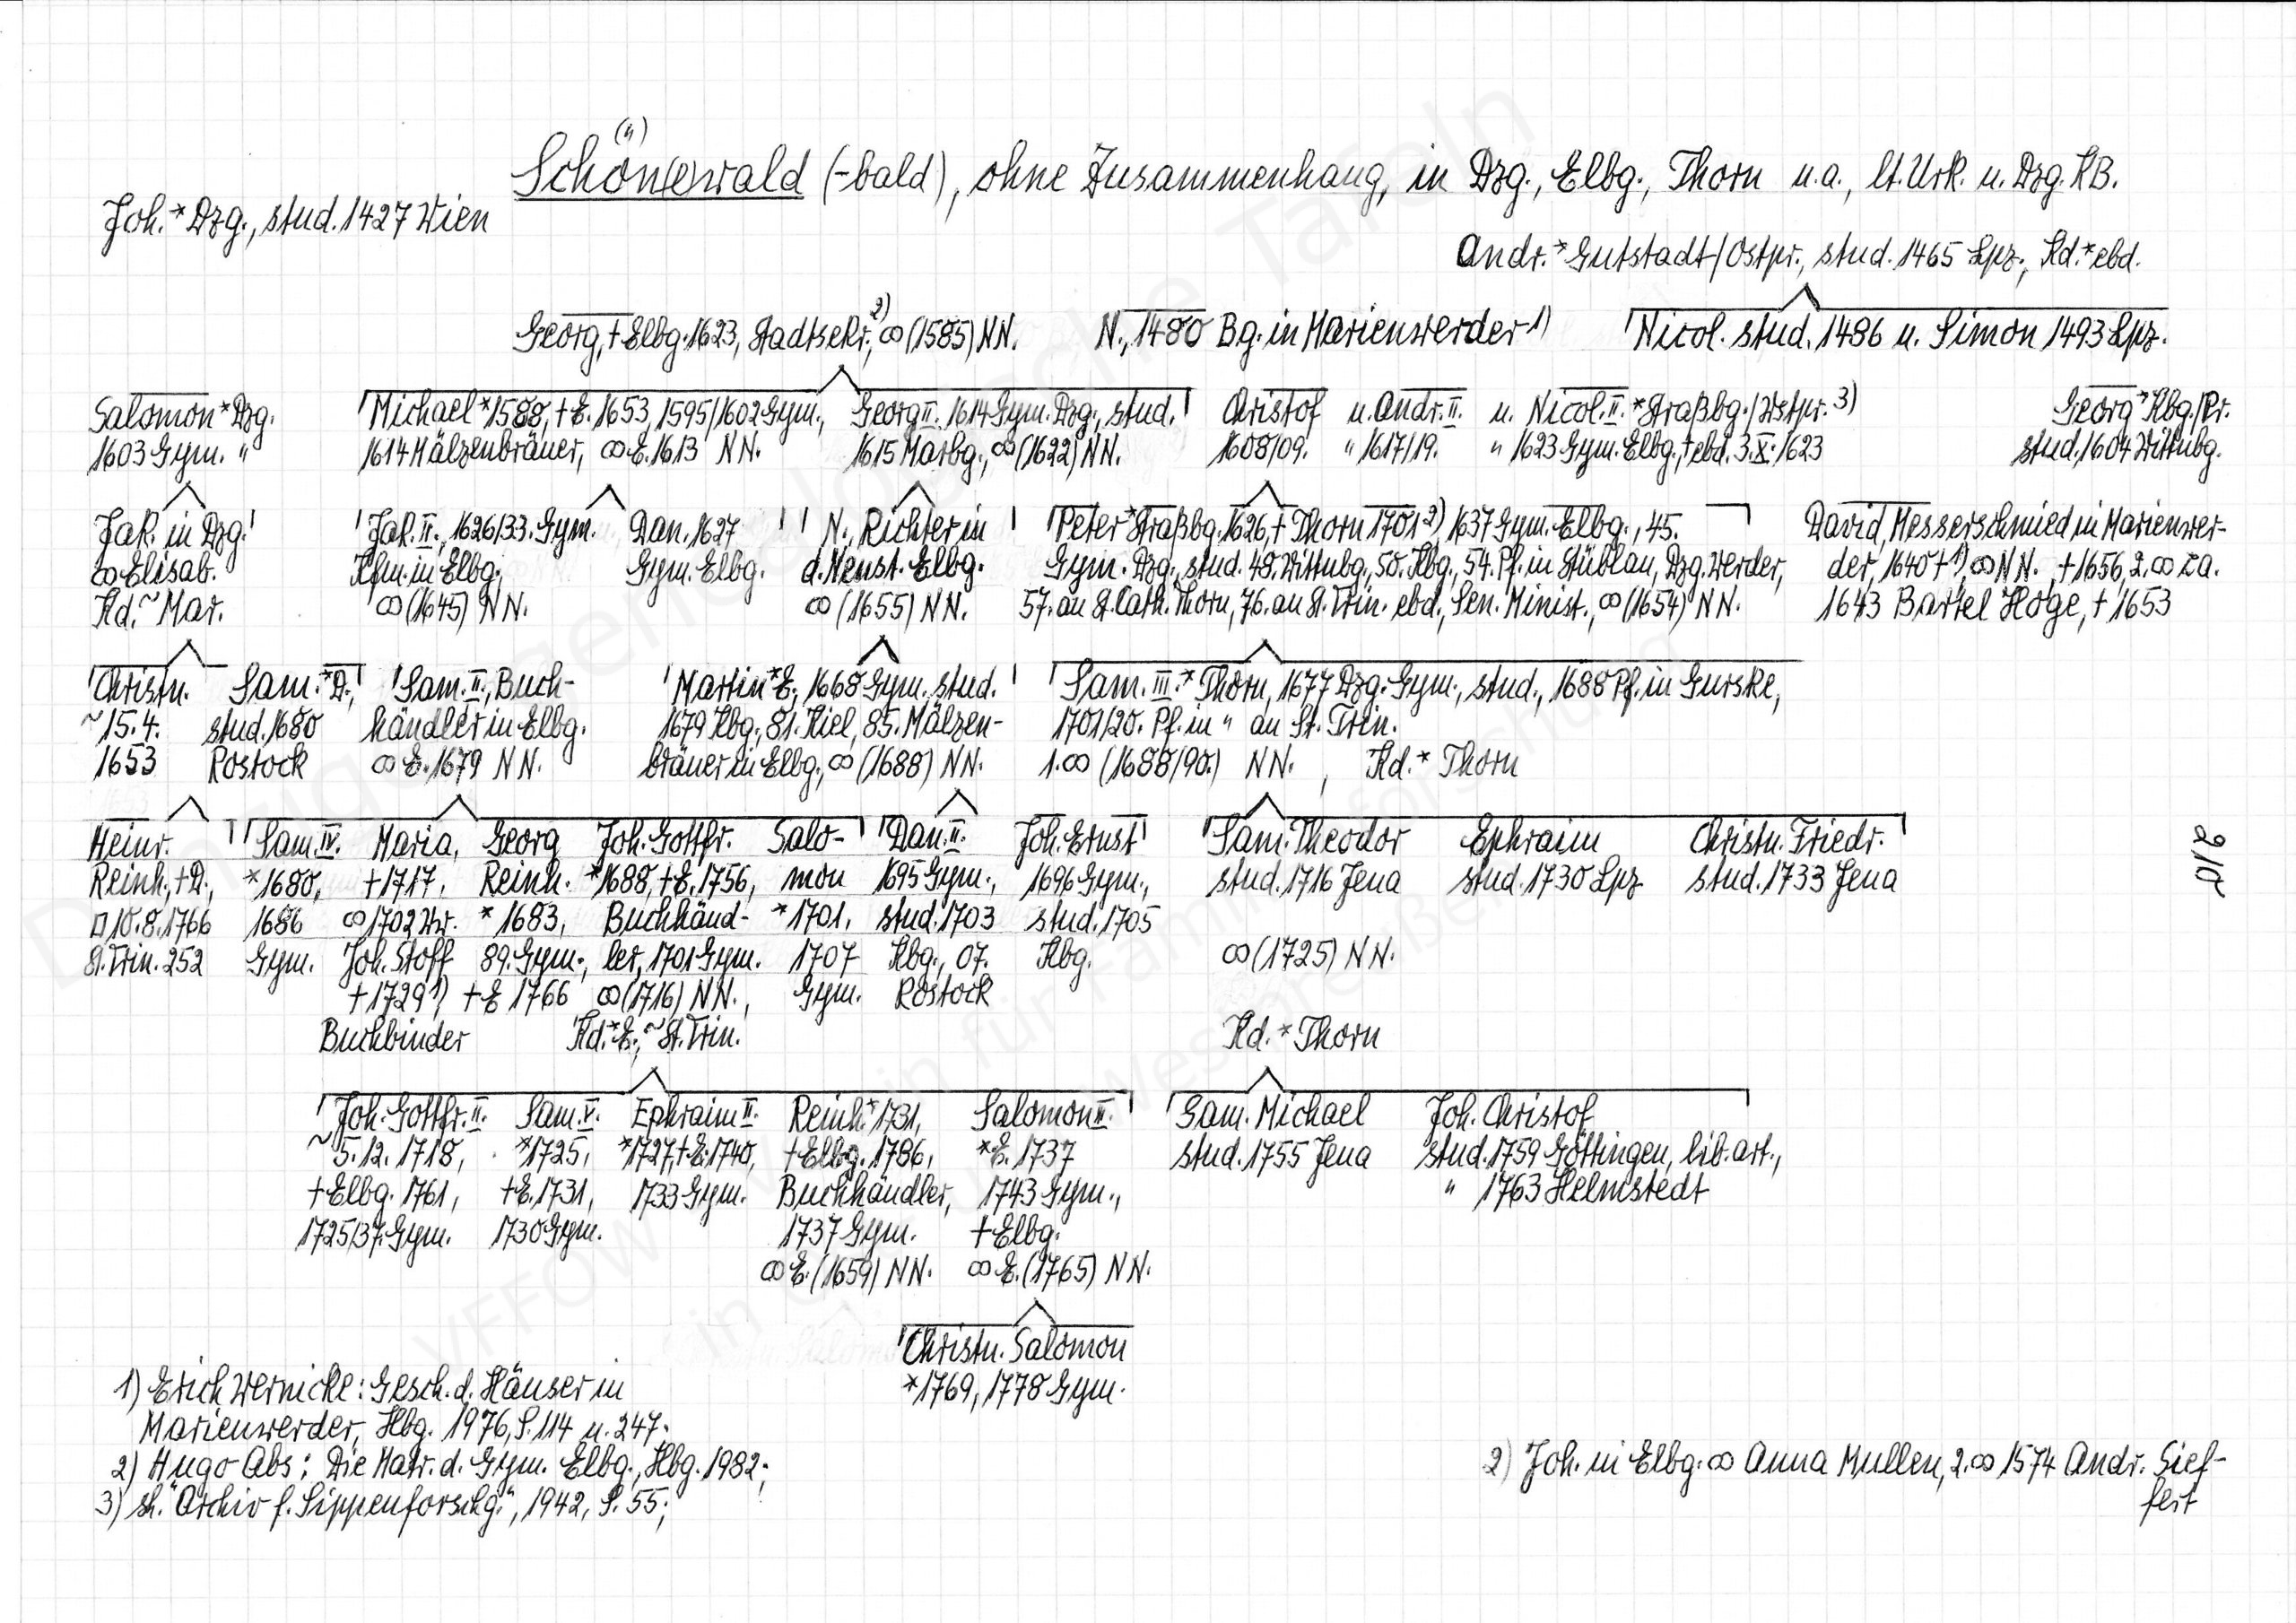 (ü)
Schön(e)wald (-bald), ohne Zusammenhang, in Dzg., Elbg., Thorn u.a., lt. Urk. u. Dzg. KB.
Joh. * Dzg., stud. 1427 Wien
Andr. * Gutstadt/Ostpr., stud. 1465 Lpz., Kd. * ebd.
Georg, † Elbg. 1623, Stadtsekr. 2), ∞ (1585) NN.
N., 1480 Bg. in Marienwerder 1)
Nicol. stud. 1486 u. Simon 1493 Lpz.
Salomon * Dzg.
1603 Gym. "
Michael * 1588, † E. 1653, 1595/1602 Gym.,
1614 Mälzenbräuer, ∞ E. 1613 NN.
Georg II. 1614 Gym. Dzg., stud.
1615 Marbg., ∞ (1622) NN.
Cristof u. Andr. II. u. Nicol. II. * Straßbg./Wstpr. 3)
1608/09. " 1617/19. " 1623 Gym. Elbg., † ebd. 3.X.1623
Georg * Kbg./Pr.
stud. 1604 Wittnbg.
Jak. in Dzg.
∞ Elisab.
Kd. ~ Mar.
Jak. II., 1626/33. Gym.
Kfm. in Elbg.
∞ (1645) NN.
Dan. 1627
Gym. Elbg.
N., Richter in
d. Neust. Elbg.
∞ (1655) NN.
Peter * Straßbg. 1626, † Thorn 1701 2) 1637 Gym. Elbg., 45.
Gym. Dzg., stud. 48. Wittnbg., 50. Kbg., 54. Pf. in Stüblau, Dzg. Werder,
57. an St. Cath. Thorn, 76. an St. Trin. ebd., Sen. Minist., ∞ (1654) NN.
David, Messerschmied in Marienwer-
der, 1640 † 1), ∞ NN., † 1656, 2. ∞ ca.
1643 Bartel Hoge, † 1653
Christn.
~ 15.4.
1653
Sam. * D.,
stud. 1680
Rostock
Sam. II., Buch-
händler in Elbg.
∞ E. 1679 NN.
Martin * E., 1668 Gym., stud.
1679 Kbg., 81. Kiel, 85. Mälzen-
bräuer in Elbg., ∞ (1688) NN.
Sam. III. * Thorn, 1677 Dzg. Gym., stud., 1688 Pf. in Gurske,
1701/20. Pf. in " an St. Trin.
1. ∞ (1688/90.) NN., Kd. * Thorn
Heinr.
Reinh., † D.,
□ 10.8.1766
St. Trin. 252
Sam. IV.
* 1680,
1686
Gym.
Maria,
† 1717,
∞ 1702 Wr.
Joh. Stoff
† 1729 1)
Buchbinder
Georg
Reinh.
* 1683,
89. Gym.,
† E 1766
Joh. Gottfr.
* 1688, † E. 1756,
Buchhänd-
ler, 1701 Gym.
∞ (1716) NN.,
Kd. * E., ~ St. Trin.
Salo-
mon
* 1701,
1707
Gym.
Dan. II.
1695 Gym.,
stud. 1703
Kbg., 07.
Rostock
Joh. Ernst
1696 Gym.,
stud. 1705
Kbg.
Sam. Theodor
stud. 1716 Jena
∞ (1725) NN.
Kd. * Thorn
Ephraim
stud. 1730 Lpz
Christn. Friedr.
stud. 1733 Jena
210
Joh. Gottfr. II.
~ 5.12.1718,
† Elbg. 1761,
1725/37. Gym.
Sam. V.
* 1725,
† E. 1731,
1730 Gym.
Ephraim II.
* 1727, † E. 1740,
1733 Gym.
Reinh. * 1731,
† Elbg. 1786,
Buchhändler,
1737 Gym.
∞ E. (1659) NN.
Salomon II.
* E. 1737
1743 Gym.,
† Elbg.
∞ E. (1765) NN.
Sam. Michael
stud. 1755 Jena
Joh. Christof
stud. 1759 Göttingen, lib. art.,
" 1763 Helmstedt
Christn. Salomon
* 1769, 1778 Gym.
1) Erich Wernicke: Gesch. d. Häuser in
Marienwerder, Hbg. 1976, S. 114 u. 247.
2) Hugo Abs: Die Matr. d. Gym. Elbg., Hbg. 1982;
3) sh. "Archiv f. Sippenforschg.", 1942, S. 55;
2) Joh. in Elbg. ∞ Anna Mullen, 2. ∞ 1574 Andr. Sief-
fert